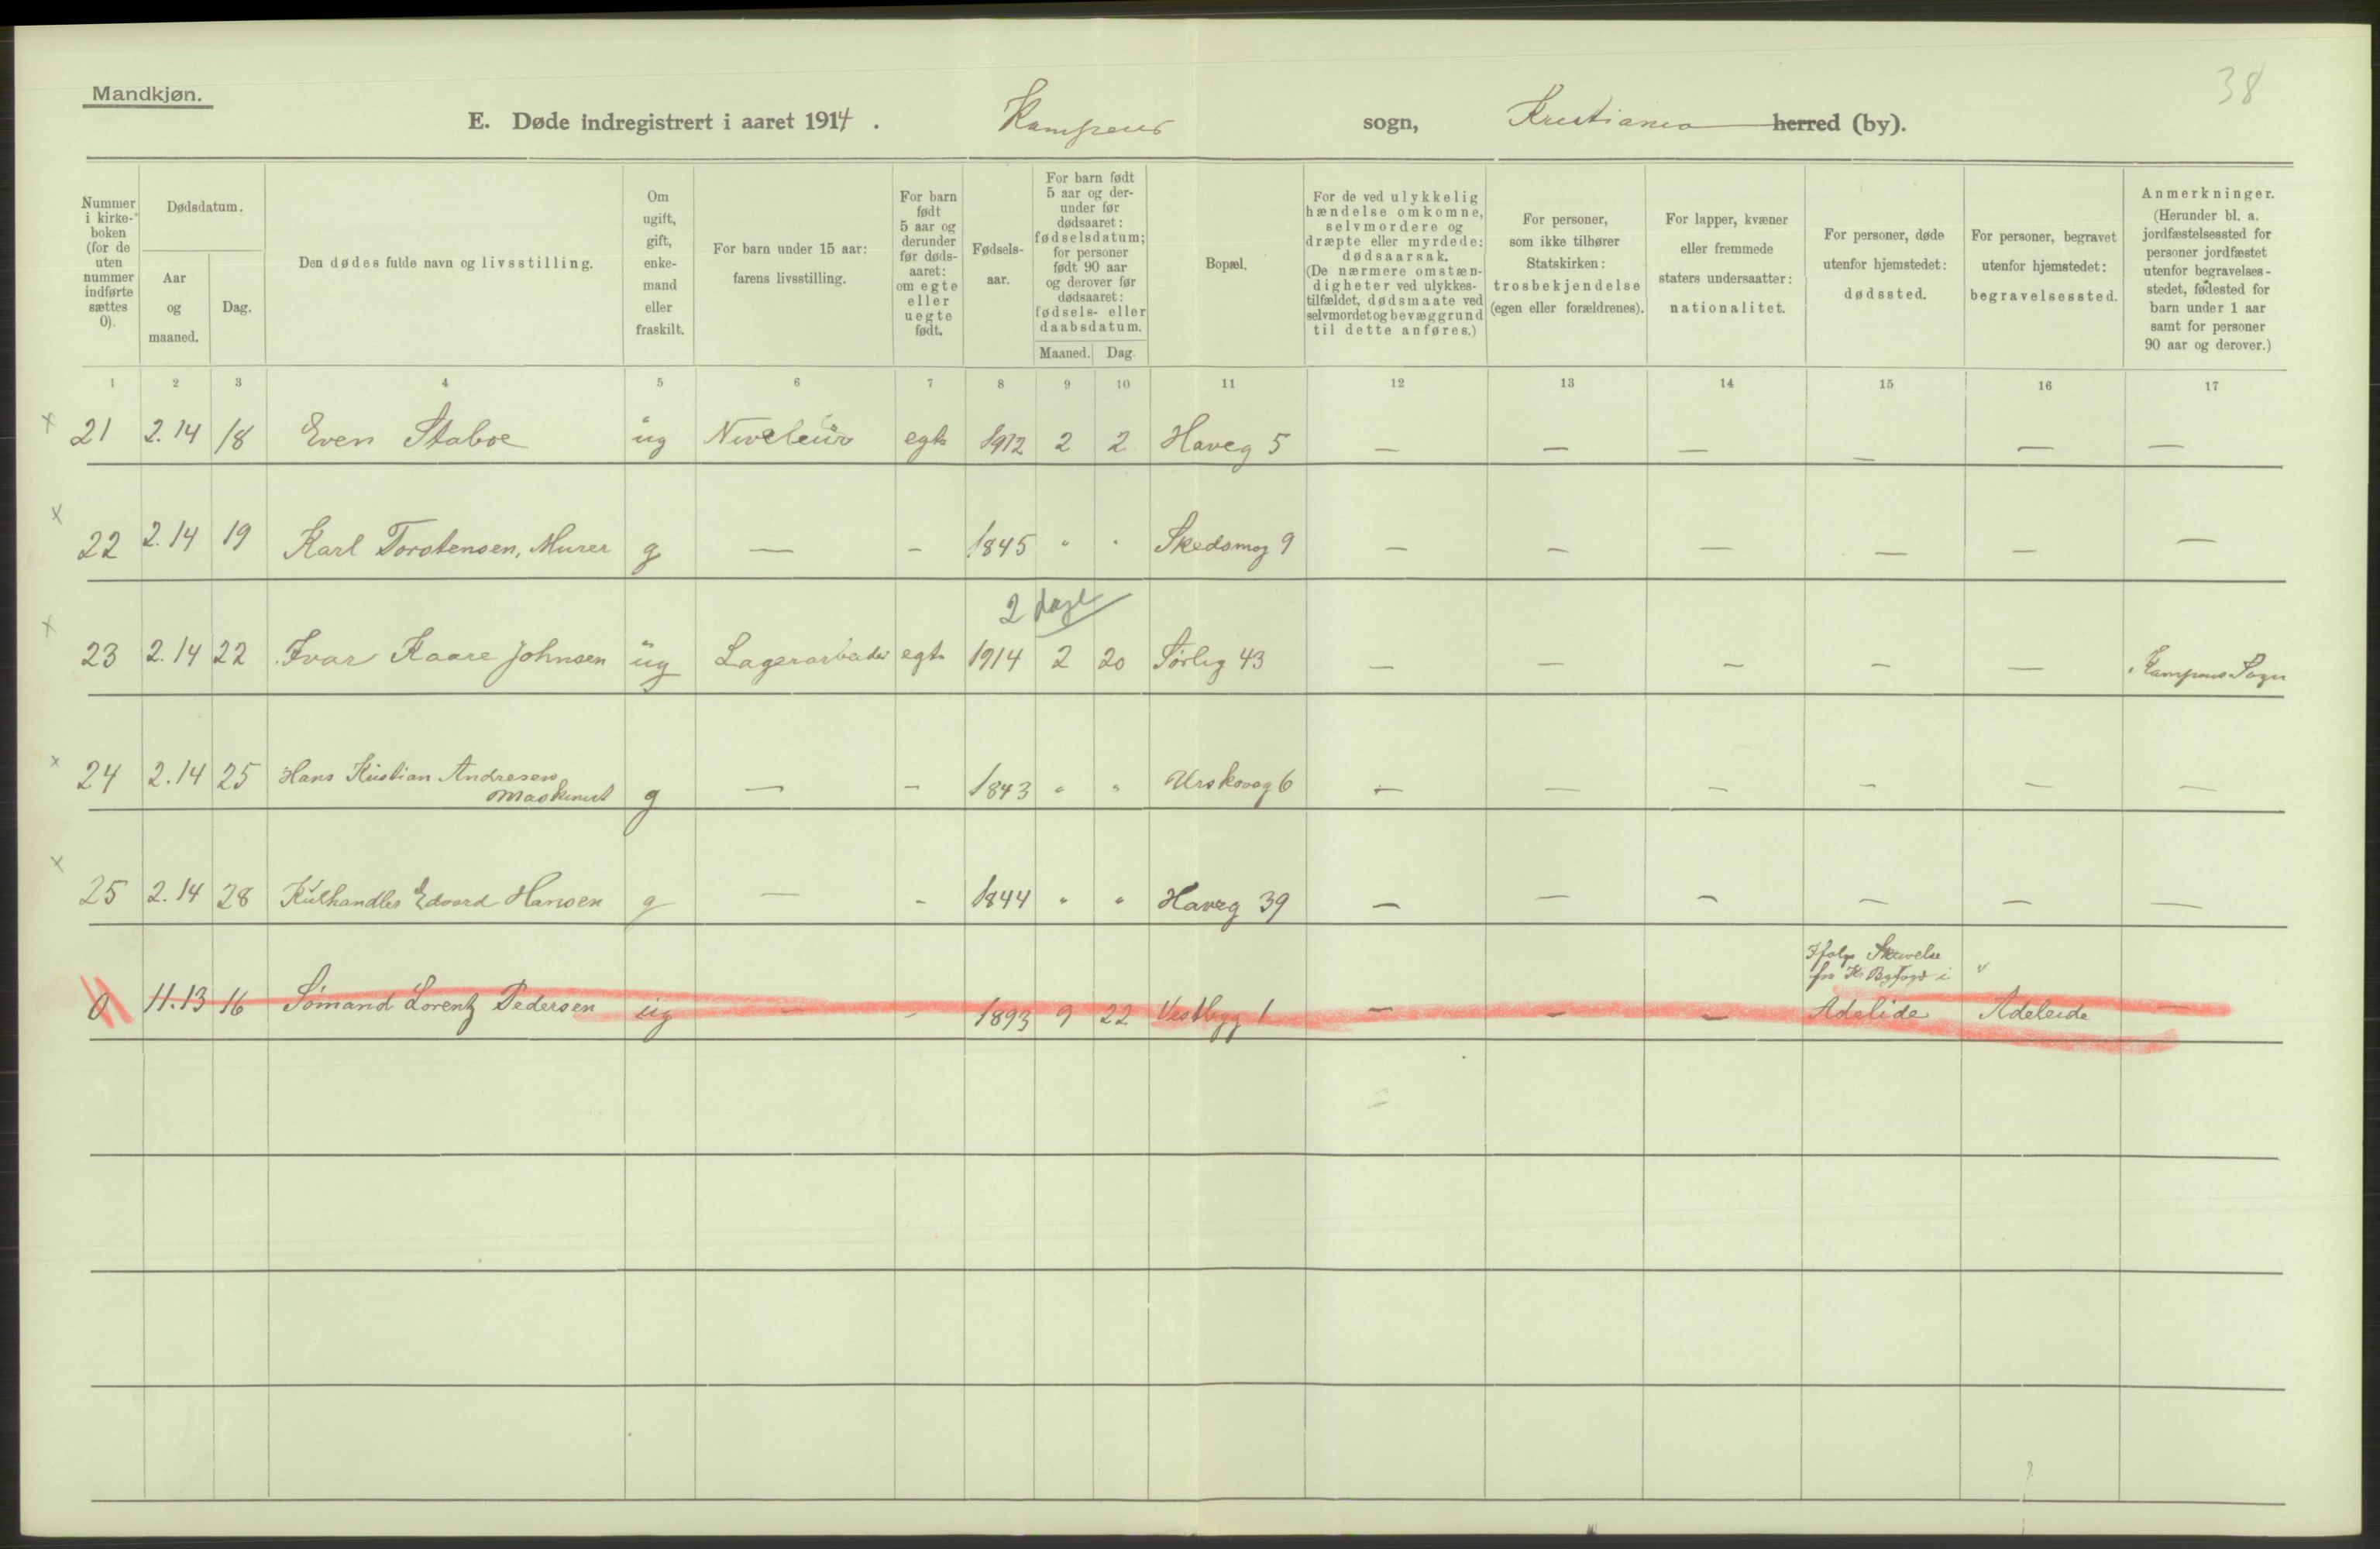 38
Mandkjøn.
E. Døde indregistrert i aaret 1914. Kampens sogn, Kristiania herred (by).
Nummer i kirke-boken (for de uten nummer indførte sættes 0).
Dødsdatum.
Aar og maaned.
Dag.
Den dødes fulde navn og livsstilling.
Om ugift, gift, enke-mand eller fraskilt.
For barn under 15 aar: farens livsstilling.
For barn født 5 aar og derunder før døds-aaret: om egte eller uegte født.
Fødsels-aar.
For barn født 5 aar og der-under før dødsaaret: fødselsdatum; for personer født 90 aar og derover før dødsaaret: fødsels- eller daabsdatum.
Maaned. Dag.
Bopæl.
For de ved ulykkelig hændelse omkomne, selvmordere og dræpte eller myrdede: dødsaarsak. (De nærmere omstæn-digheter ved ulykkes-tilfældet, dødsmaate ved selvmordet og bevæggrund til dette anføres.)
For personer, som ikke tilhører Statskirken: trosbekjendelse (egen eller forældrenes).
For lapper, kvæner eller fremmede staters undersaatter: nationalitet.
For personer, døde utenfor hjemstedet: dødssted.
For personer, begravet utenfor hjemstedet: begravelsessted.
Anmerkninger. (Herunder bl. a. jordfæstelsessted for personer jordfæstet utenfor begravelses-stedet, fødested for barn under 1 aar samt for personer 90 aar og derover.)
1 2 3 4 5 6 7 8 9 10 11 12 13 14 15 16 17
x 21 2.14 18 Even Staboe ug Niveleur egte 1912 2 2 Haveg 5 — — — — — —
x 22 2.14 19 Karl Torstensen, Murer g — - 1845 " " Skedsmog 9 — — — — — —
2 dage
x 23 2.14 22 Ivar Kaare Johnsen ug Lagerarbeider egte 1914 2 20 Sørlig 43 — — — — — Kampens Sogn
x 24 2.14 25 Hans Kristian Andresen
Maskinist g — - 1843 " " Urskovsg 6 — — — — — —
x 25 2.14 28 Kulhandler Edvard Hansen g — - 1844 " " Haveg 39 — — — — — —
Ifølge Skrivelse
fra Kr. Byfogd i
0 11.13 16 Sømand Lorentz Pedersen ug — - 1893 9 22 Vestbyg 1 — — — Adelide Adeleide —